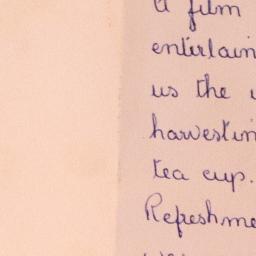 a film
entertain
us the
harvestin
tea cup.
Refreshme